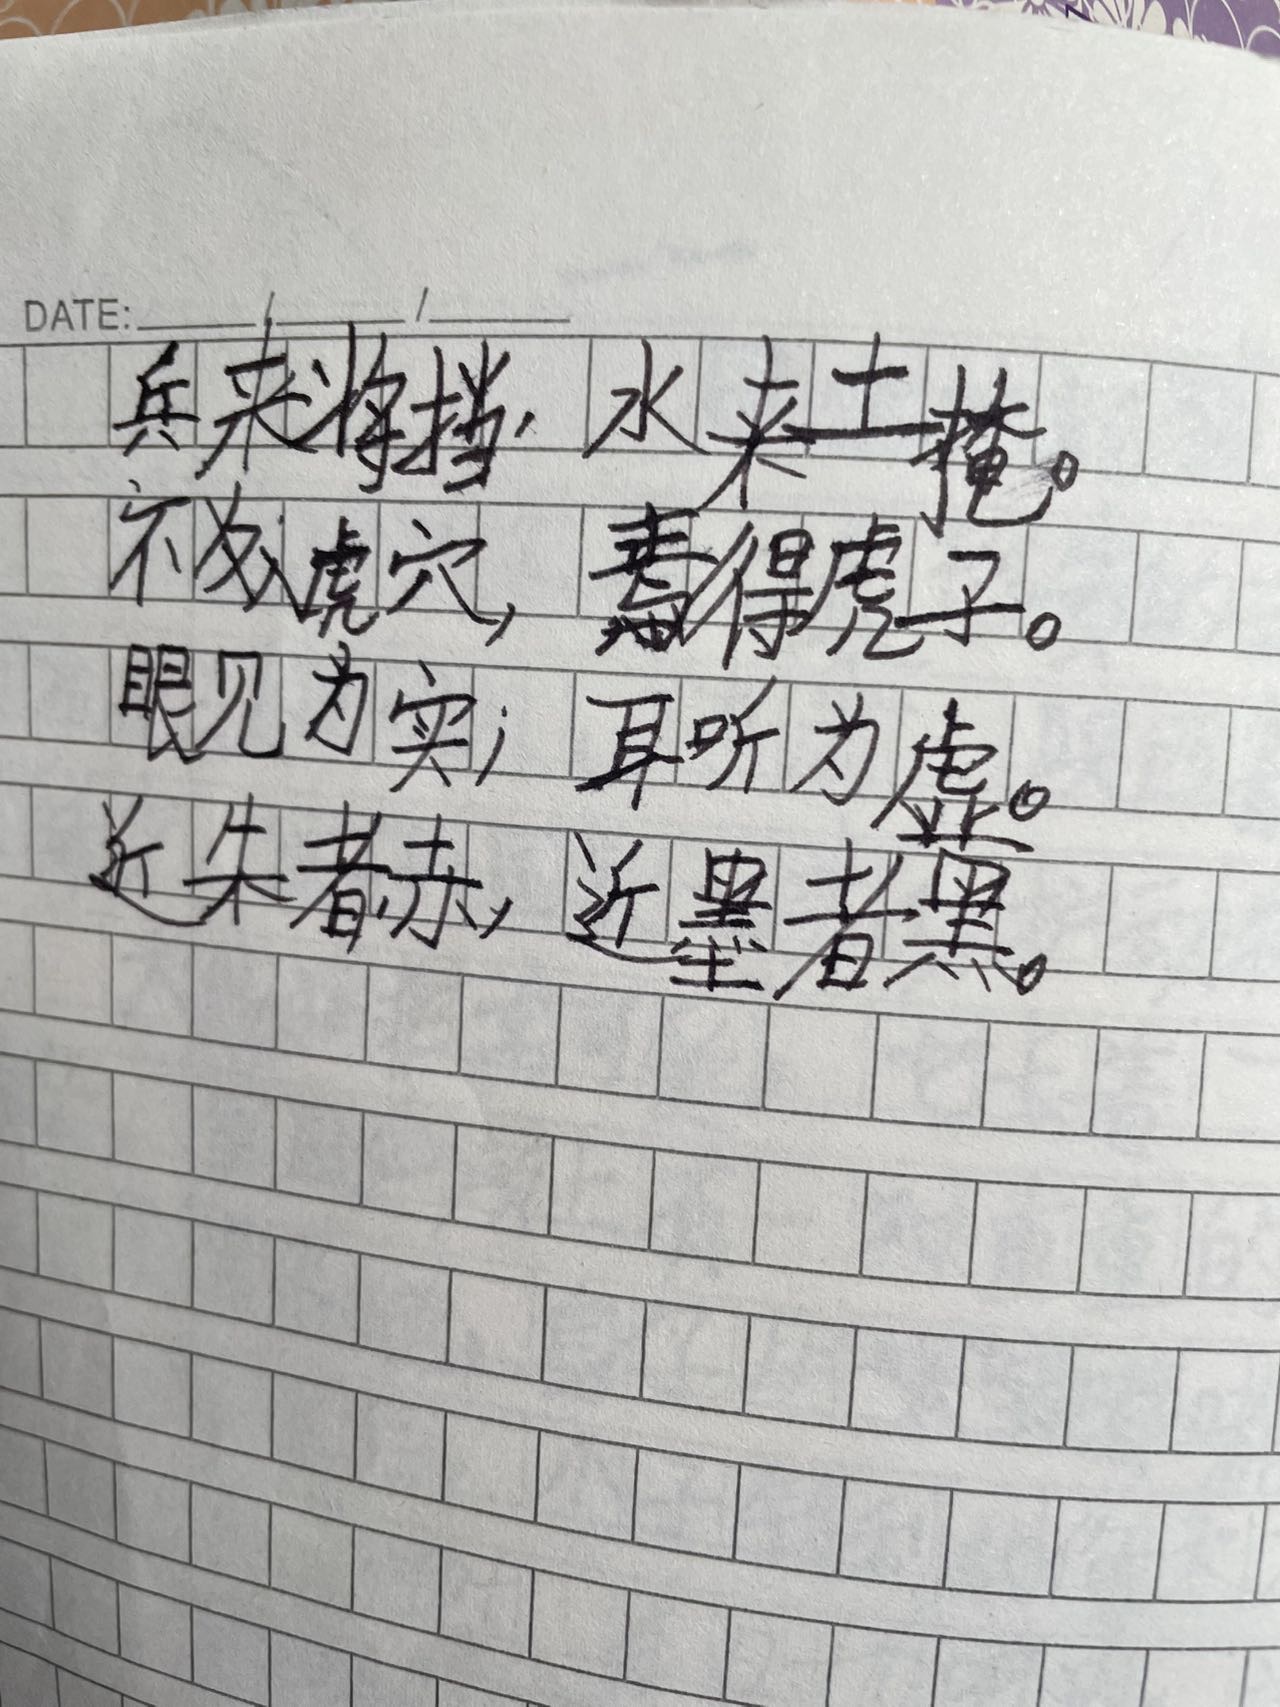 DATE: / /
兵来将挡，水来土掩。
不入虎穴，得虎子。
眼见为实；耳听为虚。
近朱者赤，近墨者黑。